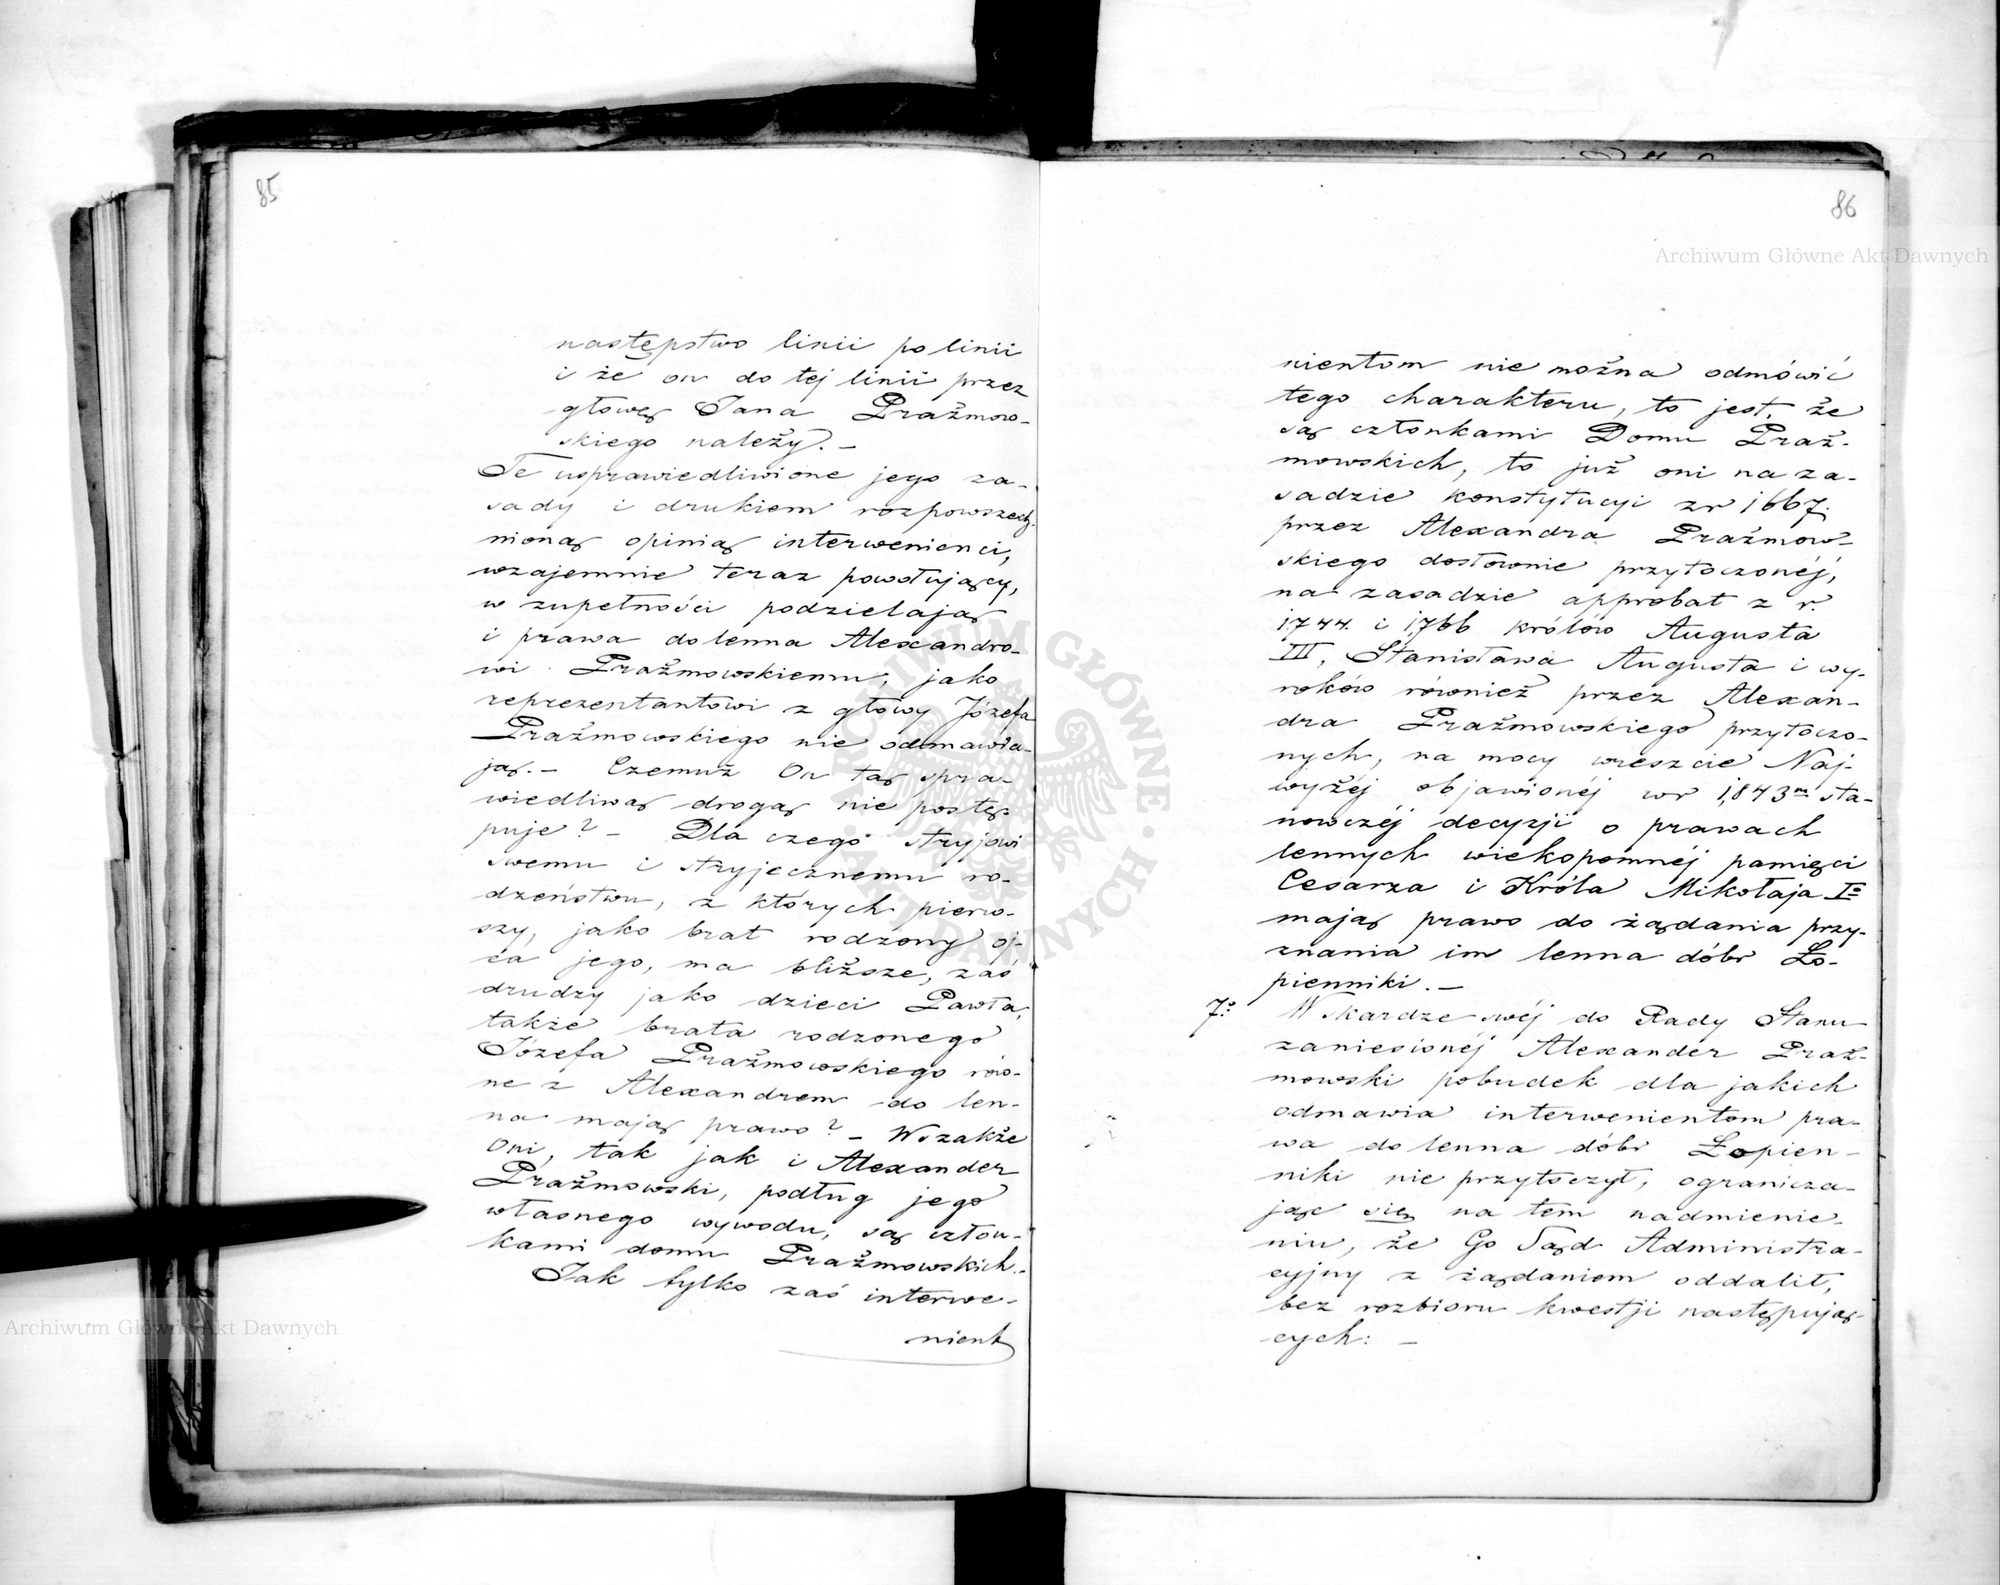 85
następstwo linii po linii
i że on do tej linii przez
głowę Jana Prażmow-
skiego należy. -
Te usprawiedliwione jego za-
sady i drukiem rozpowszech-
nioną opinią interwenienci,
wzajemnie teraz powołujący,
w zupełności podzielają
i prawa do lenna Alexandro-
wi Prażmowskiemu, jako
reprezentantowi z głowy Józefa
Prażmowskiego nie odmawia-
ją. - Czemuż On tą spra-
wiedliwą drogą nie postę-
puje? - Dla czego stryjowi
swemu i stryjecznemu ro-
dzeństwu, z których pierw-
szy, jako brat rodzony oj-
ca jego, ma bliższe, zaś
drudzy jako dzieci Pawła,
także brata rodzonego
Józefa Prażmowskiego rów-
ne z Alexandrem do len-
na mają prawo? - Wszakże
Oni, tak jak i Alexander
Prażmowski, podług jego
własnego wywodu, są człon-
kami domu Prażmowskich. -
Jak tylko zaś interwe-
nient
86
nientom nie można odmówić
tego charakteru, to jest, że
są członkami Domu Praż-
mowskich, to już oni na za-
sadzie konstytucyi z r 1667.
przez Alexandra Prażmow-
skiego dosłownie przytoczonéj,
na zasadzie approbat z r.
1744. i 1766 królów Augusta
III, Stanisława Augusta i wy-
roków również przez Alexan-
dra Prażmowskiego przytoczo-
nych, na mocy wreszcie Naj-
wyżéj objawionéj w r 1843m sta-
nowczéj decyzji o prawach
lennych wiekopomnéj pamięci
Cesarza i Króla Mikołaja Igo
mają prawo do żądania przy-
znania im lenna dóbr Ło-
pienniki. -
7o: W skardze swéj do Rady Stanu
zaniesionéj Alexander Praż-
mowski pobudek dla jakich
odmawia interwenientom pra-
wa do lenna dóbr Łopien-
niki nie przytoczył, ogranicza-
jąc się na tem nadmienie-
niu, że Go Sąd Administra-
cyjny z żądaniem oddalił,
bez rozbioru kwestji następują-
cych: -
Archiwum Główne Akt Dawnych
Archiwum Główne Akt Dawnych
ARCHIWUM GŁÓWNE · AKT DAWNYCH ·